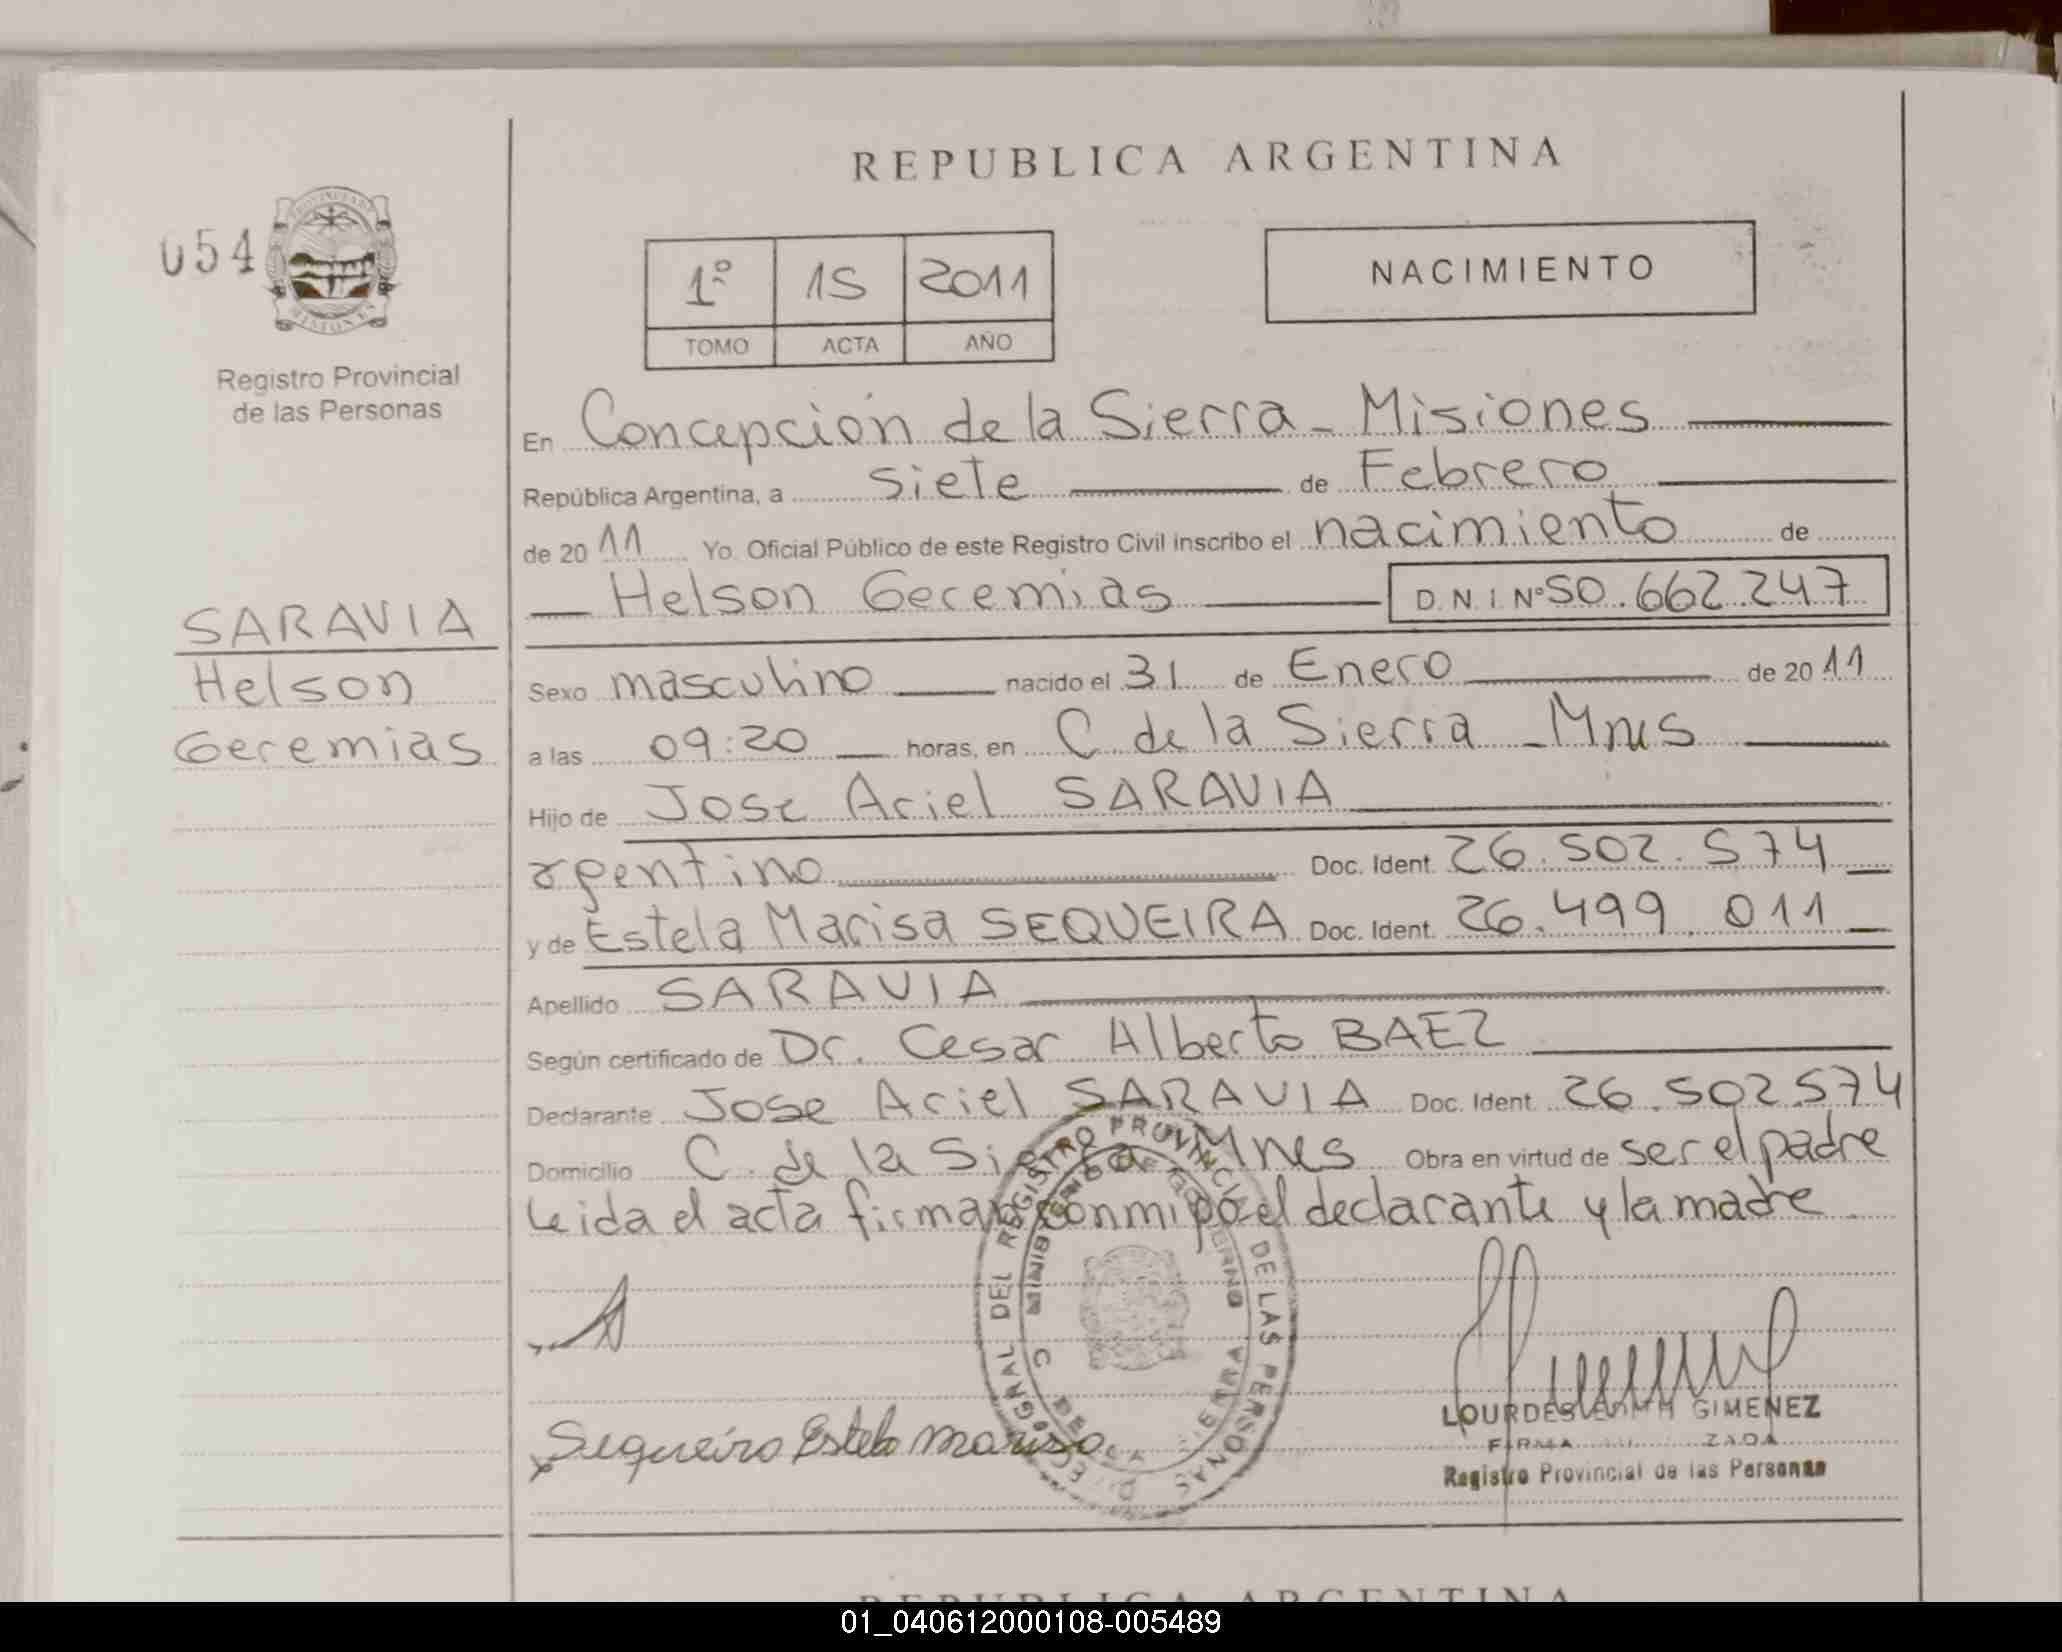 REPUBLICA ARGENTINA
054
PROVINCIA DE
MISIONES
Registro Provincial
de las Personas
1º 15 2011
TOMO ACTA AÑO
NACIMIENTO
En Concepción de la Sierra - Misiones
República Argentina, a siete de Febrero
de 2011 Yo. Oficial Público de este Registro Civil inscribo el nacimiento de
Helson Geremias D.N.I. Nº 50.662.247
SARAVIA
Helson
Geremias
Sexo masculino nacido el 31 de Enero de 2011
a las 09:20 horas, en C. de la Sierra - Mnes
Hijo de Jose Ariel SARAVIA
argentino Doc. Ident. 26.502.574
y de Estela Marisa SEQUEIRA Doc. Ident. 26.499.011
Apellido SARAVIA
Según certificado de Dr. Cesar Alberto BAEZ
Declarante Jose Ariel SARAVIA Doc. Ident. 26.502.574
Domicilio C. de la Sierra Mnes Obra en virtud de ser el padre
Leida el acta firman conmigo el declarante y la madre
DEL REGISTRO PROVINCIAL DE LAS PERSONAS
Sequeira Estela marisa
LOURDES GIMENEZ
FIRMA
Registro Provincial de las Personas
REPUBLICA ARGENTINA
01_040612000108-005489